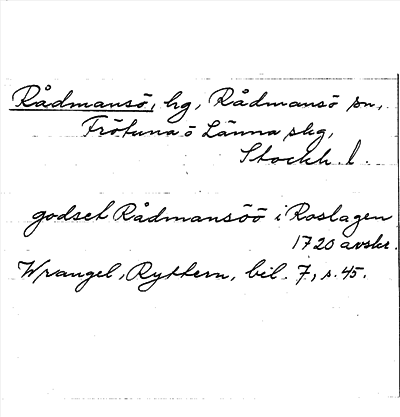 Rådmansö, hg, Rådmansö sn,
Frötuna o Länna skg,
Stockh. l.
godset Rådmansöö i Roslagen
1720 avskr.
Wrangel, Ryttern, bil. 7, s. 45.